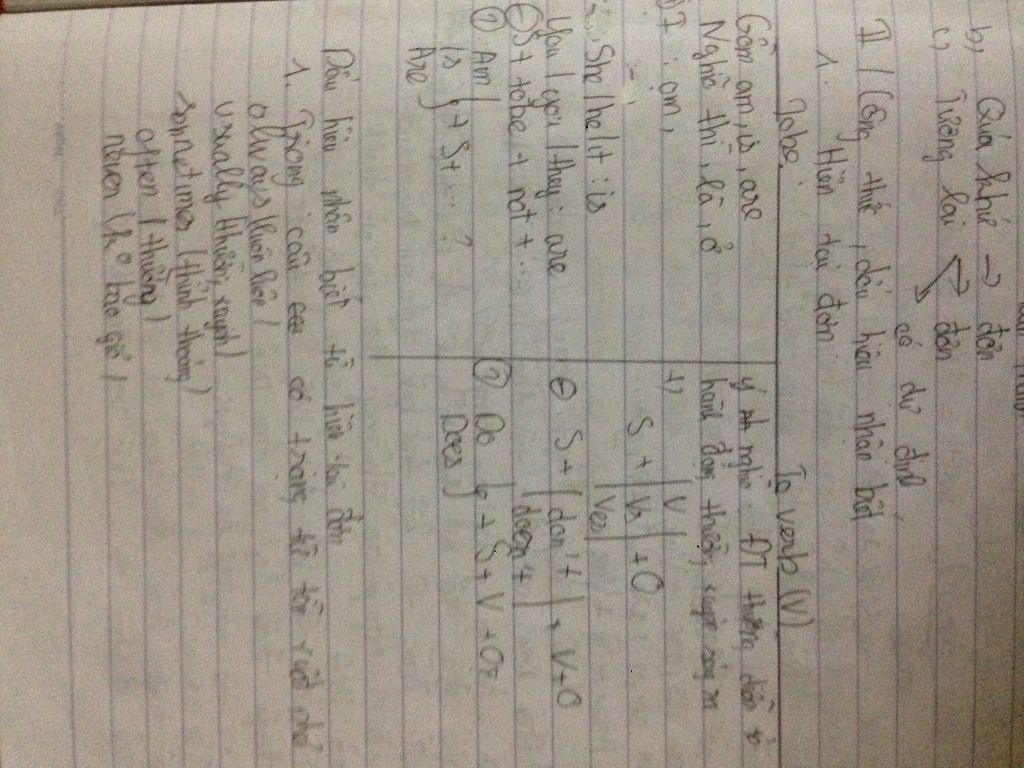 b, Quá khứ → đơn
c, Tương lai → đơn
có dự định
II / Công thức, dấu hiệu nhận biết
1. Hiện tại đơn.
Tobe. To verb (V)
Gồm am, is, are
Nghĩa thì, là, ở
I : am,
She/he/it : is
You / you / they : are
⊖ S + tobe + not + ...
? Am
Is } + S + ... ?
Are
hành động thường xuyên
+, V
S + Vs + O
Ves
⊖ S + don't + V + O
doesn't
? Do } + S + V + O
Does
Dấu hiệu phân biệt hiện tại đơn
1. Trong câu có trạng từ tần suất như
always (luôn luôn)
usually (thường xuyên)
sometimes (thỉnh thoảng)
often (thường)
never (k° bao giờ)